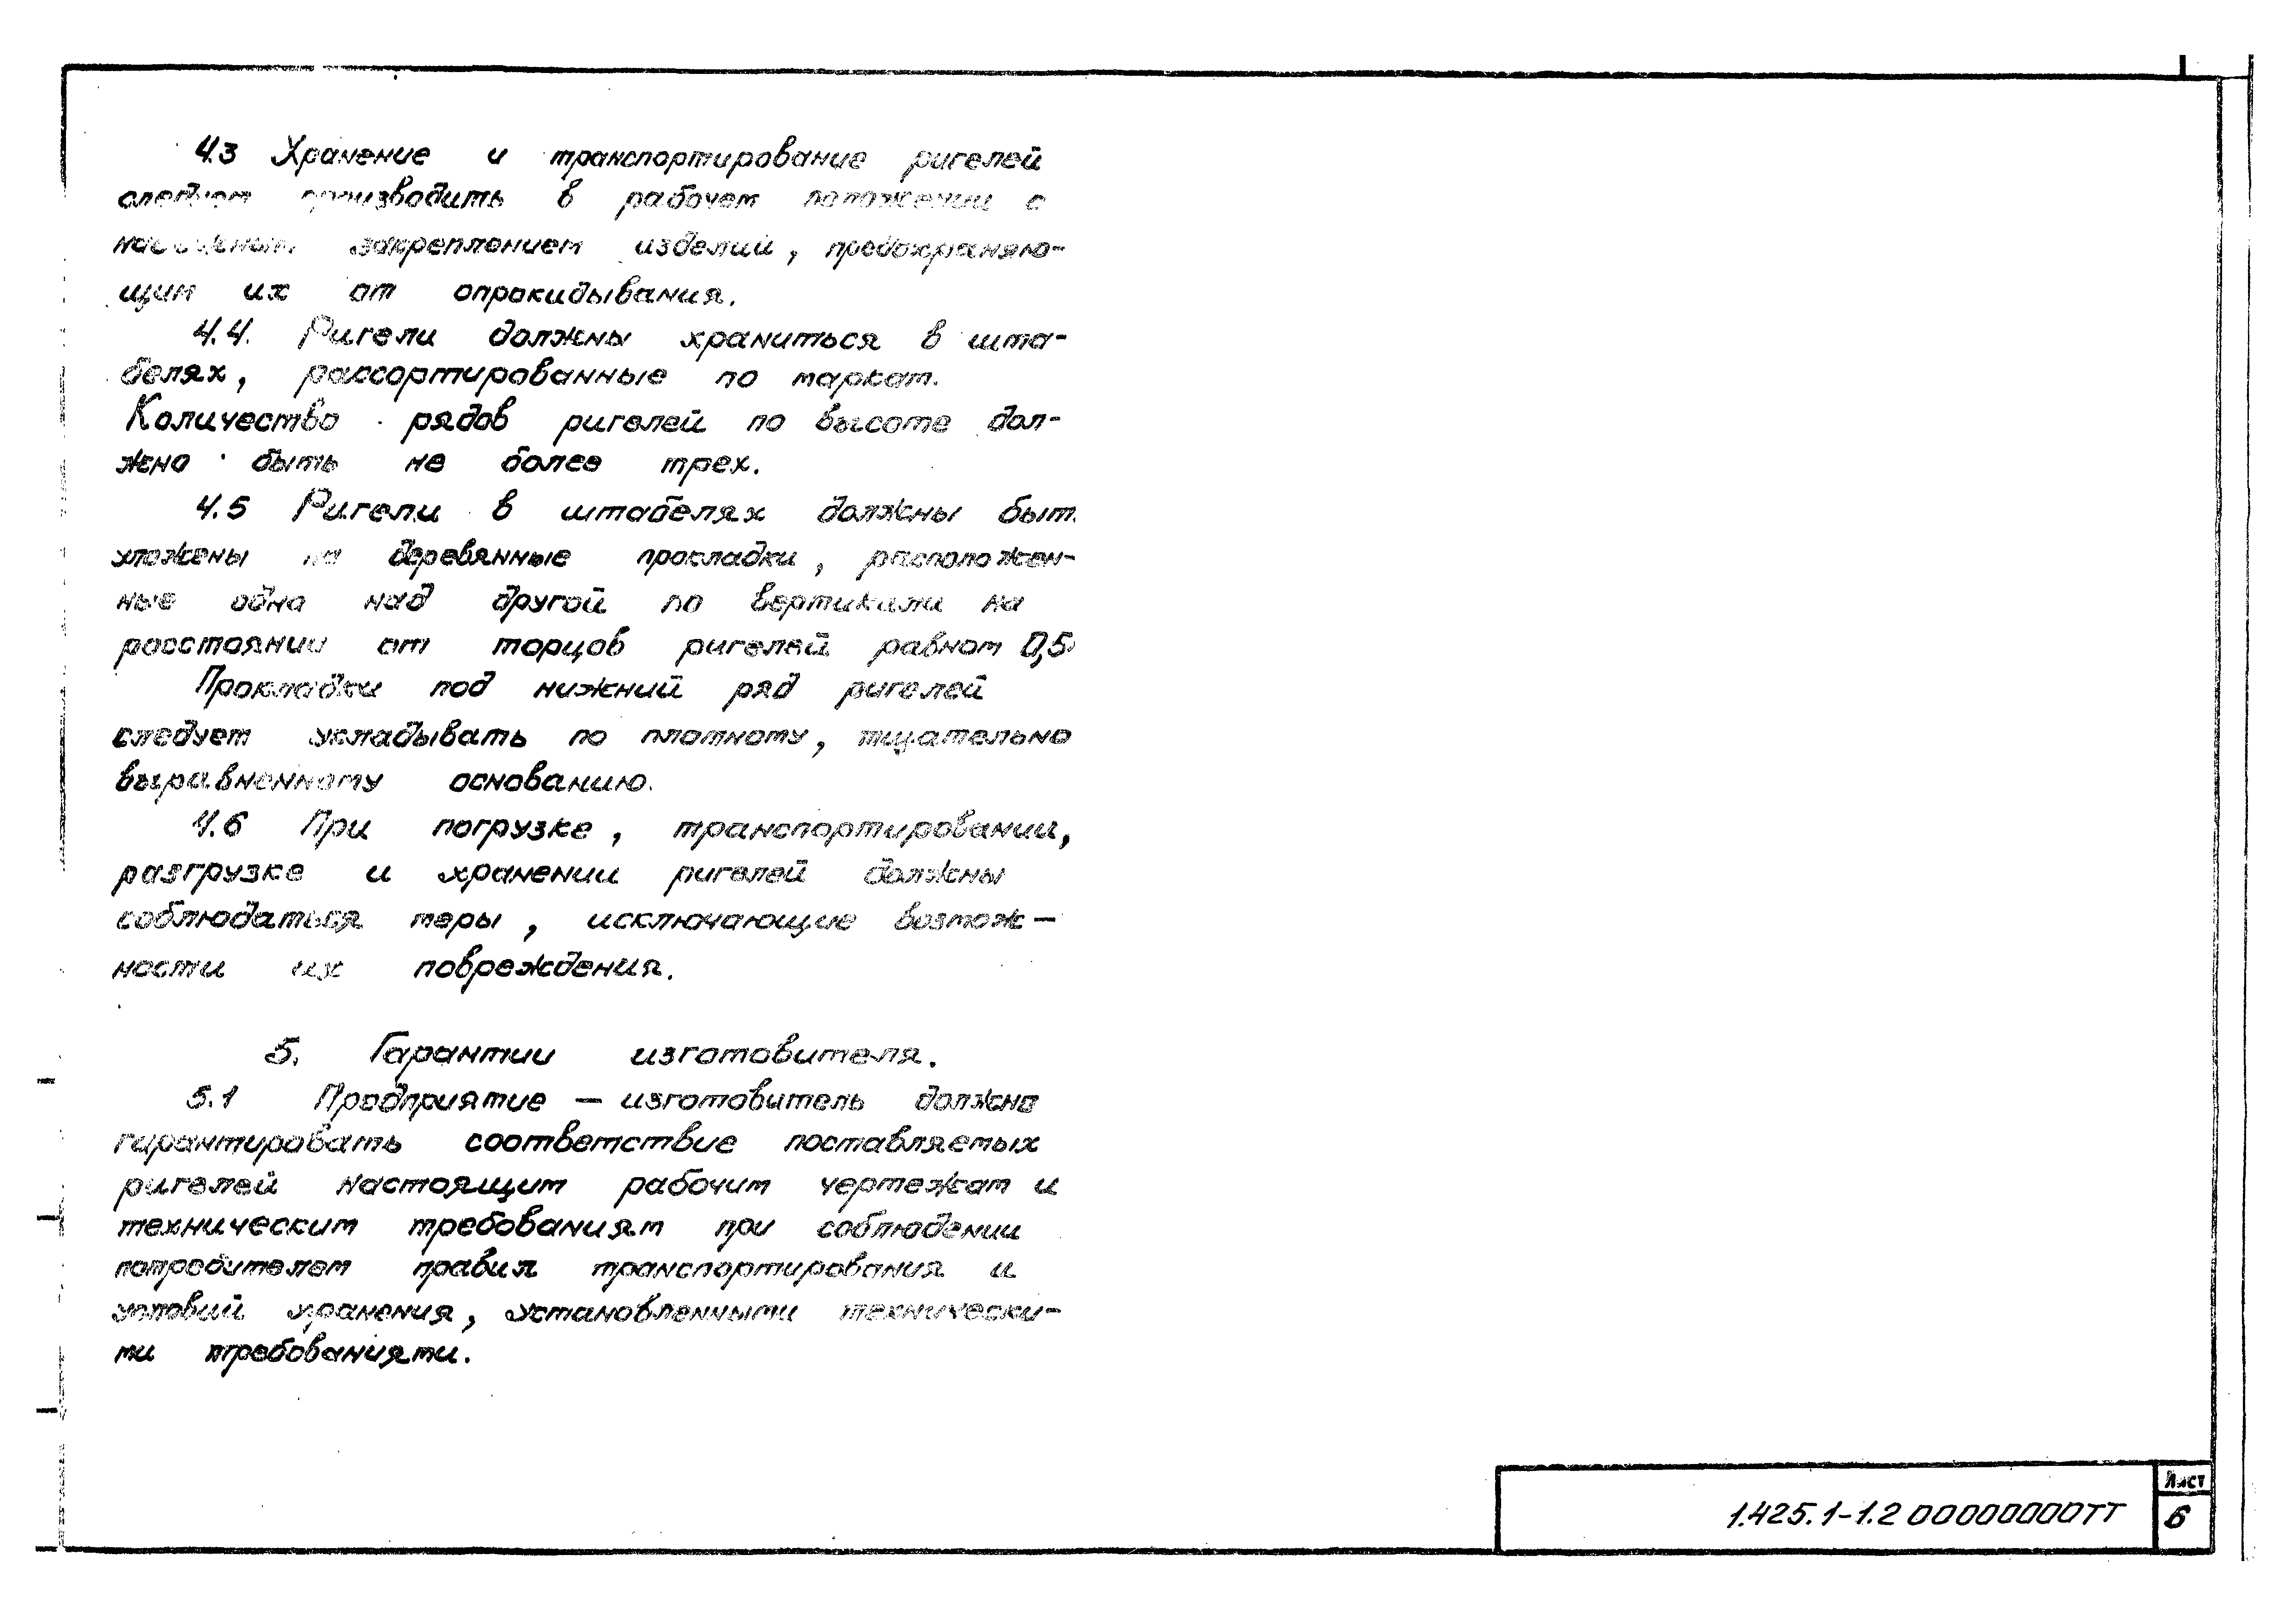 4.3 Хранение и транспортирование ригелей
следует производить в рабочем положении с
надежным закреплением изделий, предохраняю-
щим их от опрокидывания.
4.4. Ригели должны храниться в шта-
белях, рассортированные по маркам.
Количество рядов ригелей по высоте дол-
жно быть не более трех.
4.5 Ригели в штабелях должны быт
уложены на деревянные прокладки, расположен-
ные одна над другой по вертикали на
расстоянии от торцов ригелей равном 0,5
Прокладки под нижний ряд ригелей
следует укладывать по плотному, тщательно
выравненному основанию.
4.6 При погрузке, транспортировании,
разгрузке и хранении ригелей должны
соблюдаться меры, исключающие возмож-
ности их повреждения.
5. Гарантии изготовителя.
5.1 Предприятие - изготовитель должно
гарантировать соответствие поставляемых
ригелей настоящим рабочим чертежам и
техническим требованиям при соблюдении
потребителем правил транспортирования и
условий хранения, установленными технически-
ми требованиями.
1.425.1-1.2 00000000ТТ
Лист
6